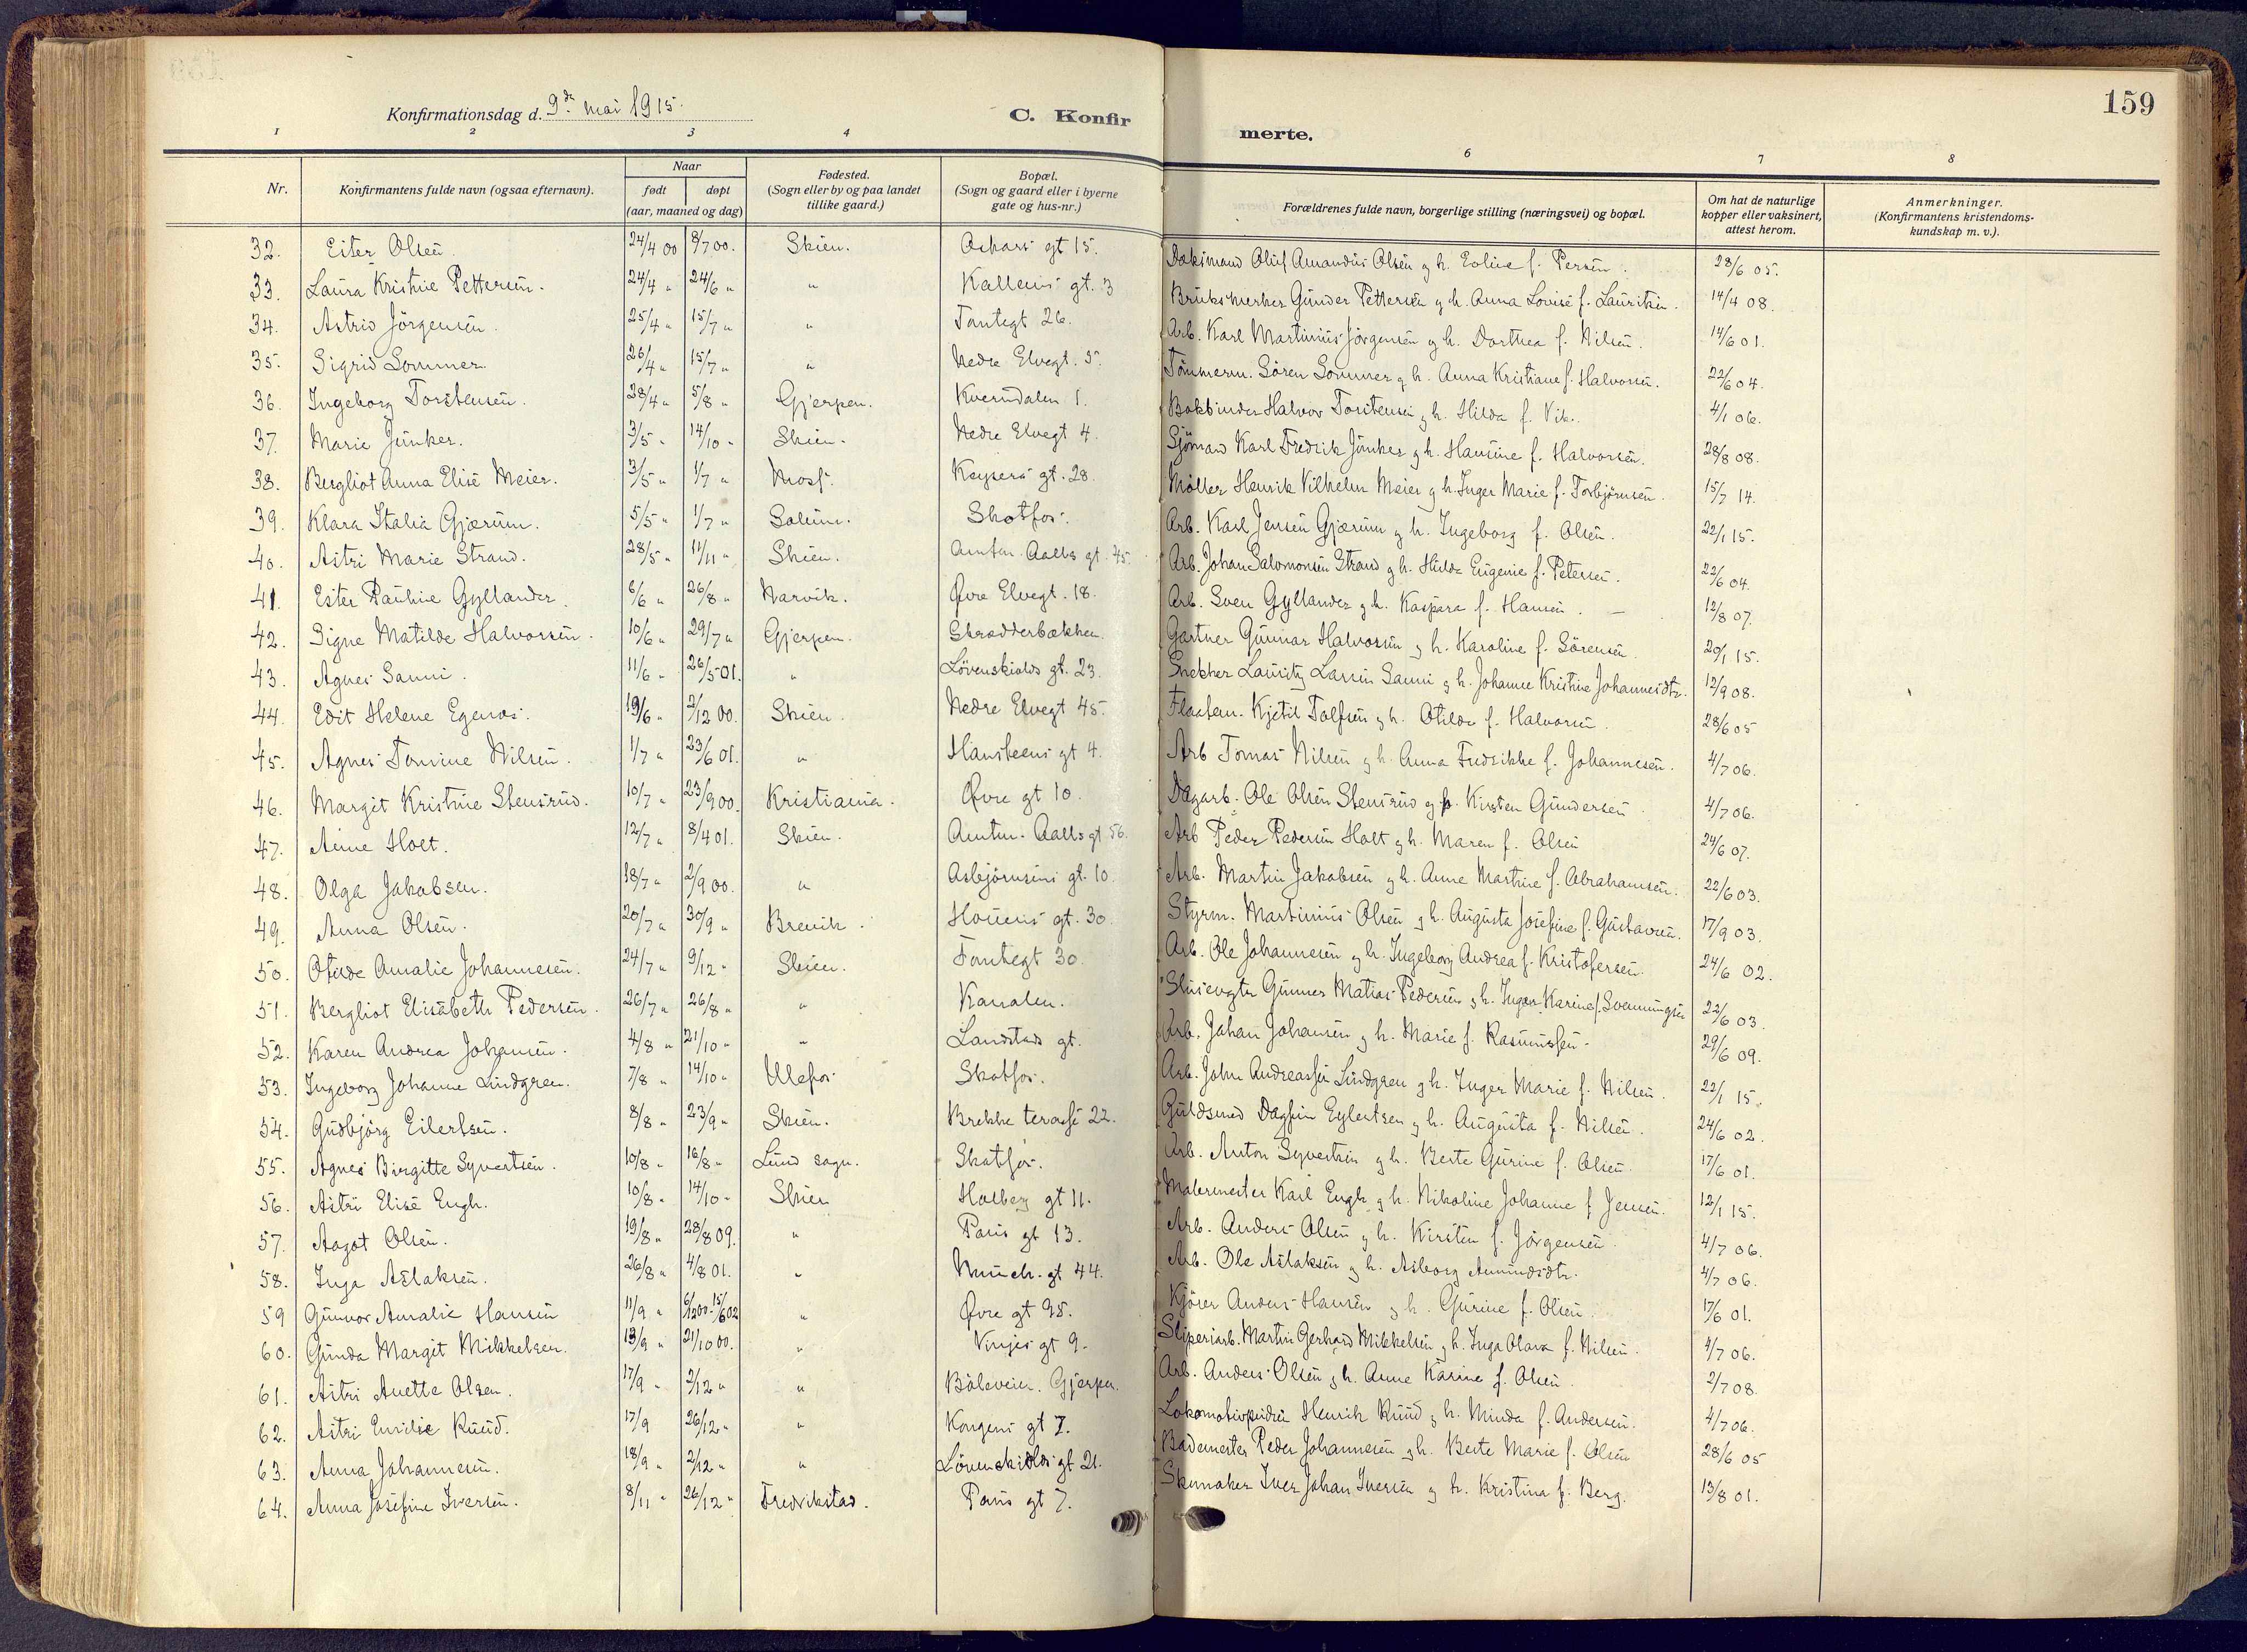 159
Konfirmationsdag d. 9de mai 1915.
C. Konfirmerte.
1 2 3 4 6 7 8
Nr. Konfirmantens fulde navn (ogsaa efternavn). Naar født døpt (aar, maaned og dag) Fødested. (Sogn eller by og paa landet tillike gaard.) Bopæl. (Sogn og gaard eller i byerne gate og hus-nr.) Forældrenes fulde navn, borgerlige stilling (næringsvei) og bopæl. Om hat de naturlige kopper eller vaksinert, attest herom. Anmerkninger. (Konfirmantens kristendomskundskap m. v.).
32. Ester Olsen. 24/4 00 8/7 00. Skien. gt 15. Oluf Amandus Olsen og h. Eoline f. 28/6 05.
33. Laura Kristine Pettersen. 24/4 " 24/6 " " Kallens gt. 3 Gunder Pettersen og h. Anna Lovise f. Lauritsen. 14/4 08.
34. Astrid Jörgensen. 25/4 " 15/7 " " Tomtegt 26. Arb. Karl Martinius Jörgensen og h. Dorthea f. Nilsen. 14/6 01.
35. Sigrid Sommer. 26/4 " 15/7 " " Nedre Elvegt. 5. Tömmerm. Sören Sommer og h. Anna Kristiane f. Halvorsen. 22/6 04.
36. Ingeborg Torstensen. 28/4 " 5/8 " Gjerpen. Kverndalen 1. Bokbinder Halvor Torstensen og h. Hilda f. Vik. 4/1 06.
37. Marie Junker. 3/5 " 14/10 " Skien. Nedre Elvegt 4. Sjömand Karl Fredrik Junker og h. Hansine f. Halvorsen. 28/8 08.
38. Bergliot Anna Elise Meier. 3/5 " 1/7 " Moss. Keysers gt. 28. Möller Henrik Vilhelm Meier og h. Inger Marie f. Torbjörnsen. 15/7 14.
39. Klara Italia Gjærum. 5/5 " 1/7 " Solum. Skotfos. Arb. Karl Jensen Gjærum og h. Ingeborg f. Olsen. 22/1 15.
40. Astri Marie Strand. 28/5 " 11/11 " Skien. Amtm. Aalls gt. 45. Arb. Johan Salomonsen Strand og h. Hilda Eugenie f. Petersen. 22/6 04.
41. Ester Pauline Gyllander. 6/6 " 26/8 " Narvik. Øvre Elvegt. 18. Arb. Sven Gyllander og h. Kaspara f. Hansen. 12/8 07.
42. Signe Matilde Halvorsen. 10/6 " 29/7 " Gjerpen. Skradderbækken. Gartner Gunnar Halvorsen og h. Karoline f. Sörensen. 20/1 15.
43. Agnes Sanni. 11/6 " 26/5 01. " Lövenskiolds gt. 23. Snekker Lauritz Larsen Sanni og h. Johanne Kristine Johannesdtr. 12/9 08.
44. Edit Helene Egenæs. 19/6 " 2/12 00. Skien. Nedre Elvegt 45. Kjetil Tolfsen og h. Otilde f. Halvorsen. 28/6 05
45. Agnes Tomine Nilsen. 1/7 " 23/6 01. " Hansteens gt 4. Arb Tomas Nilsen og h. Anna Fredrikke f. Johannesen. 4/7 06.
46. Margit Kristine Stensrud. 10/7 " 23/9 00. Kristiania. Øvre gt 10. Dagarb. Ole Olsen Stensrud og h. Kirsten Gundersen. 4/7 06.
47. Aase Holt. 12/7 " 8/4 01. Skien. Amtm. Aalls gt 56. Arb Peder Pedersen Holt og h. Maren f. Olsen 24/6 07.
48. Olga Jakobsen. 18/7 " 2/9 00. " Asbjörnsens gt. 10. Arb. Martin Jakobsen og h. Anne Martine f. Abrahamsen. 22/6 03.
49. Anna Olsen. 20/7 " 30/9 " Brevik. Houens gt. 30. Styrm. Martinius Olsen og h. Augusta Josefine f. Gustavsen. 17/9 03.
50. Otilde Amalie Johannesen. 24/7 " 9/12 " Skien. Tomtegt 30. Arb. Ole Johannesen og h. Ingeborg Andrea f. Kristofersen. 24/6 02.
51. Bergliot Elisabeth Pedersen. 26/7 " 26/8 " " Kanalen. Slusevgtr Gunner Matias Pedersen og h. Inger Karine f. Svenningsen 22/6 03.
52. Karen Andrea Johansen. 4/8 " 21/10 " " Landstads gt. Arb. Johan Johansen og h. Marie f. Rasmussen. 29/6 09.
53. Ingeborg Johanne Lindgren. 7/8 " 14/10 " Ulefos Skotfos. Arb. John Andreassen Lindgren og h. Inger Marie f. Nilsen. 22/1 15.
54. Gudbjörg Eilertsen. 8/8 " 23/9 " Skien. Brekke terasse 22. Guldsmed Dagfin Eylertsen og h. Augusta f. Nilsen. 24/6 02.
55. Agnes Birgitte Syvertsen. 10/8 " 16/8 " Lund sogn. Skotfos. Arb. Anton Syvertsen og h. Berte Gurine f. Olsen. 17/6 01.
56. Astri Elise Engh. 10/8 " 14/10 " Skien Holberg gt 11. Malermester Karl Engh og h. Nikoline Johanne f Jensen. 12/1 15.
57. Aagot Olsen. 19/8 " 28/8 09. " Paris gt 13. Arb. Anders Olsen og h. Kirsten f. Jörgensen. 4/7 06.
58. Inga Aslaksen. 26/8 " 4/8 01. " Munch. gt 44. Arb. Ole Aslaksen og h. Asborg Amundsdtr. 4/7 06.
59 Gunvor Amalie Hansen 11/9 " 6/12 00 - 15/6 02 " Øvre gt 95. Kjörer Anders Hansen og h. Gurine f. Olsen. 17/6 01.
60. Gunda Margit Mikkelsen. 13/9 " 21/10 00. " Vinjes gt 9. Sliperiarb. Martin Gerhard Mikkelsen og h. Inga Olava f. Nilsen. 4/7 06.
61. Astri Anette Olsen. 17/9 " 2/12 " " Böleveien. Gjerpen. Arb. Anders Olsen og h. Anne Karine f. Olsen. 2/7 08.
62. Astri Emilie Ruud. 17/9 26/12 " " Kongens gt 7. Henrik Ruud og h. Minda f. Andersen. 4/7 06.
63. Anna Johannesen. 18/9 " 2/12 " " Lövenskiolds gt 21. Bademester Peder Johannesen og h. Berte Marie f. Olsen 28/6 05
64. Anna Josefine Iversen. 8/11 " 26/12 " Fredrikstad. Paris gt 7. Skomaker Iver Johan Iversen og h. Kristina f. Berg. 13/8 01.